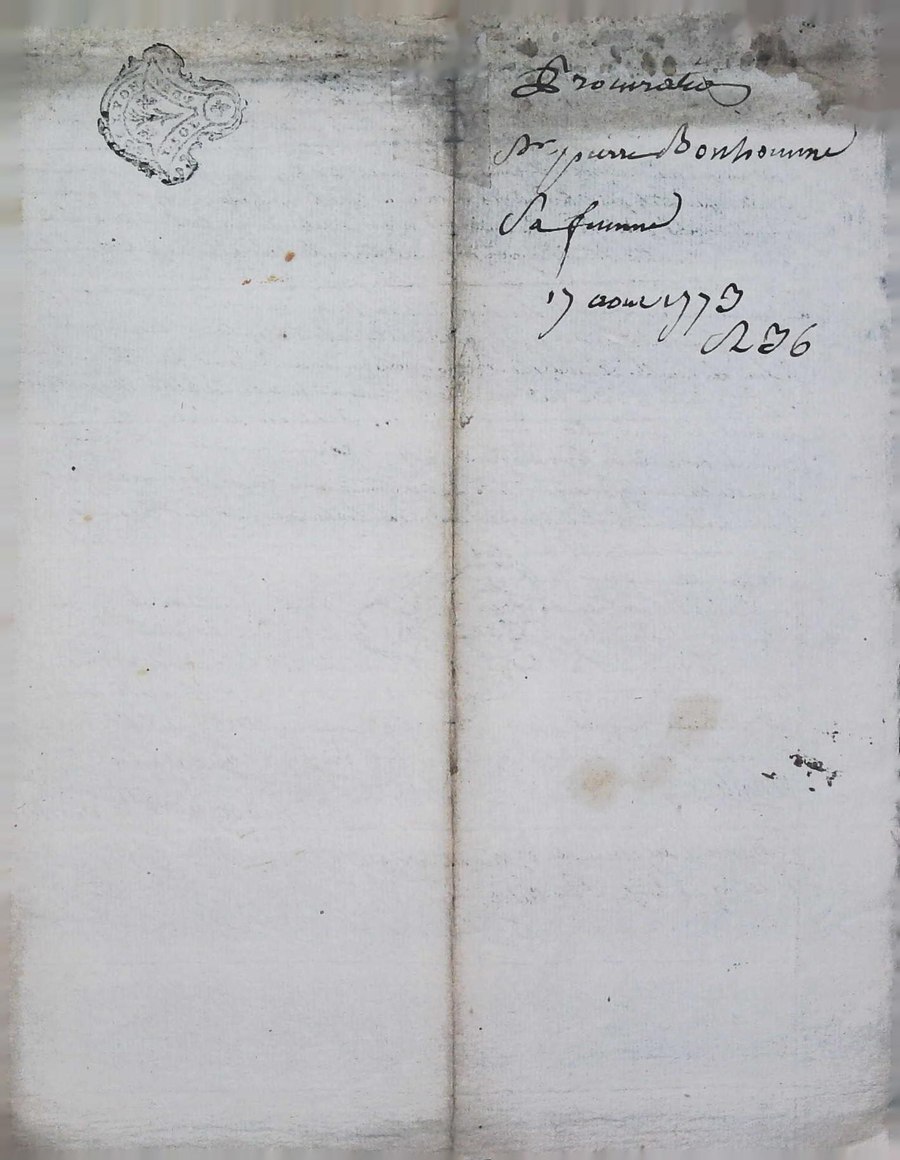 Procuration
Sr pierre Bonhomme
Sa femme
17 aout 1773